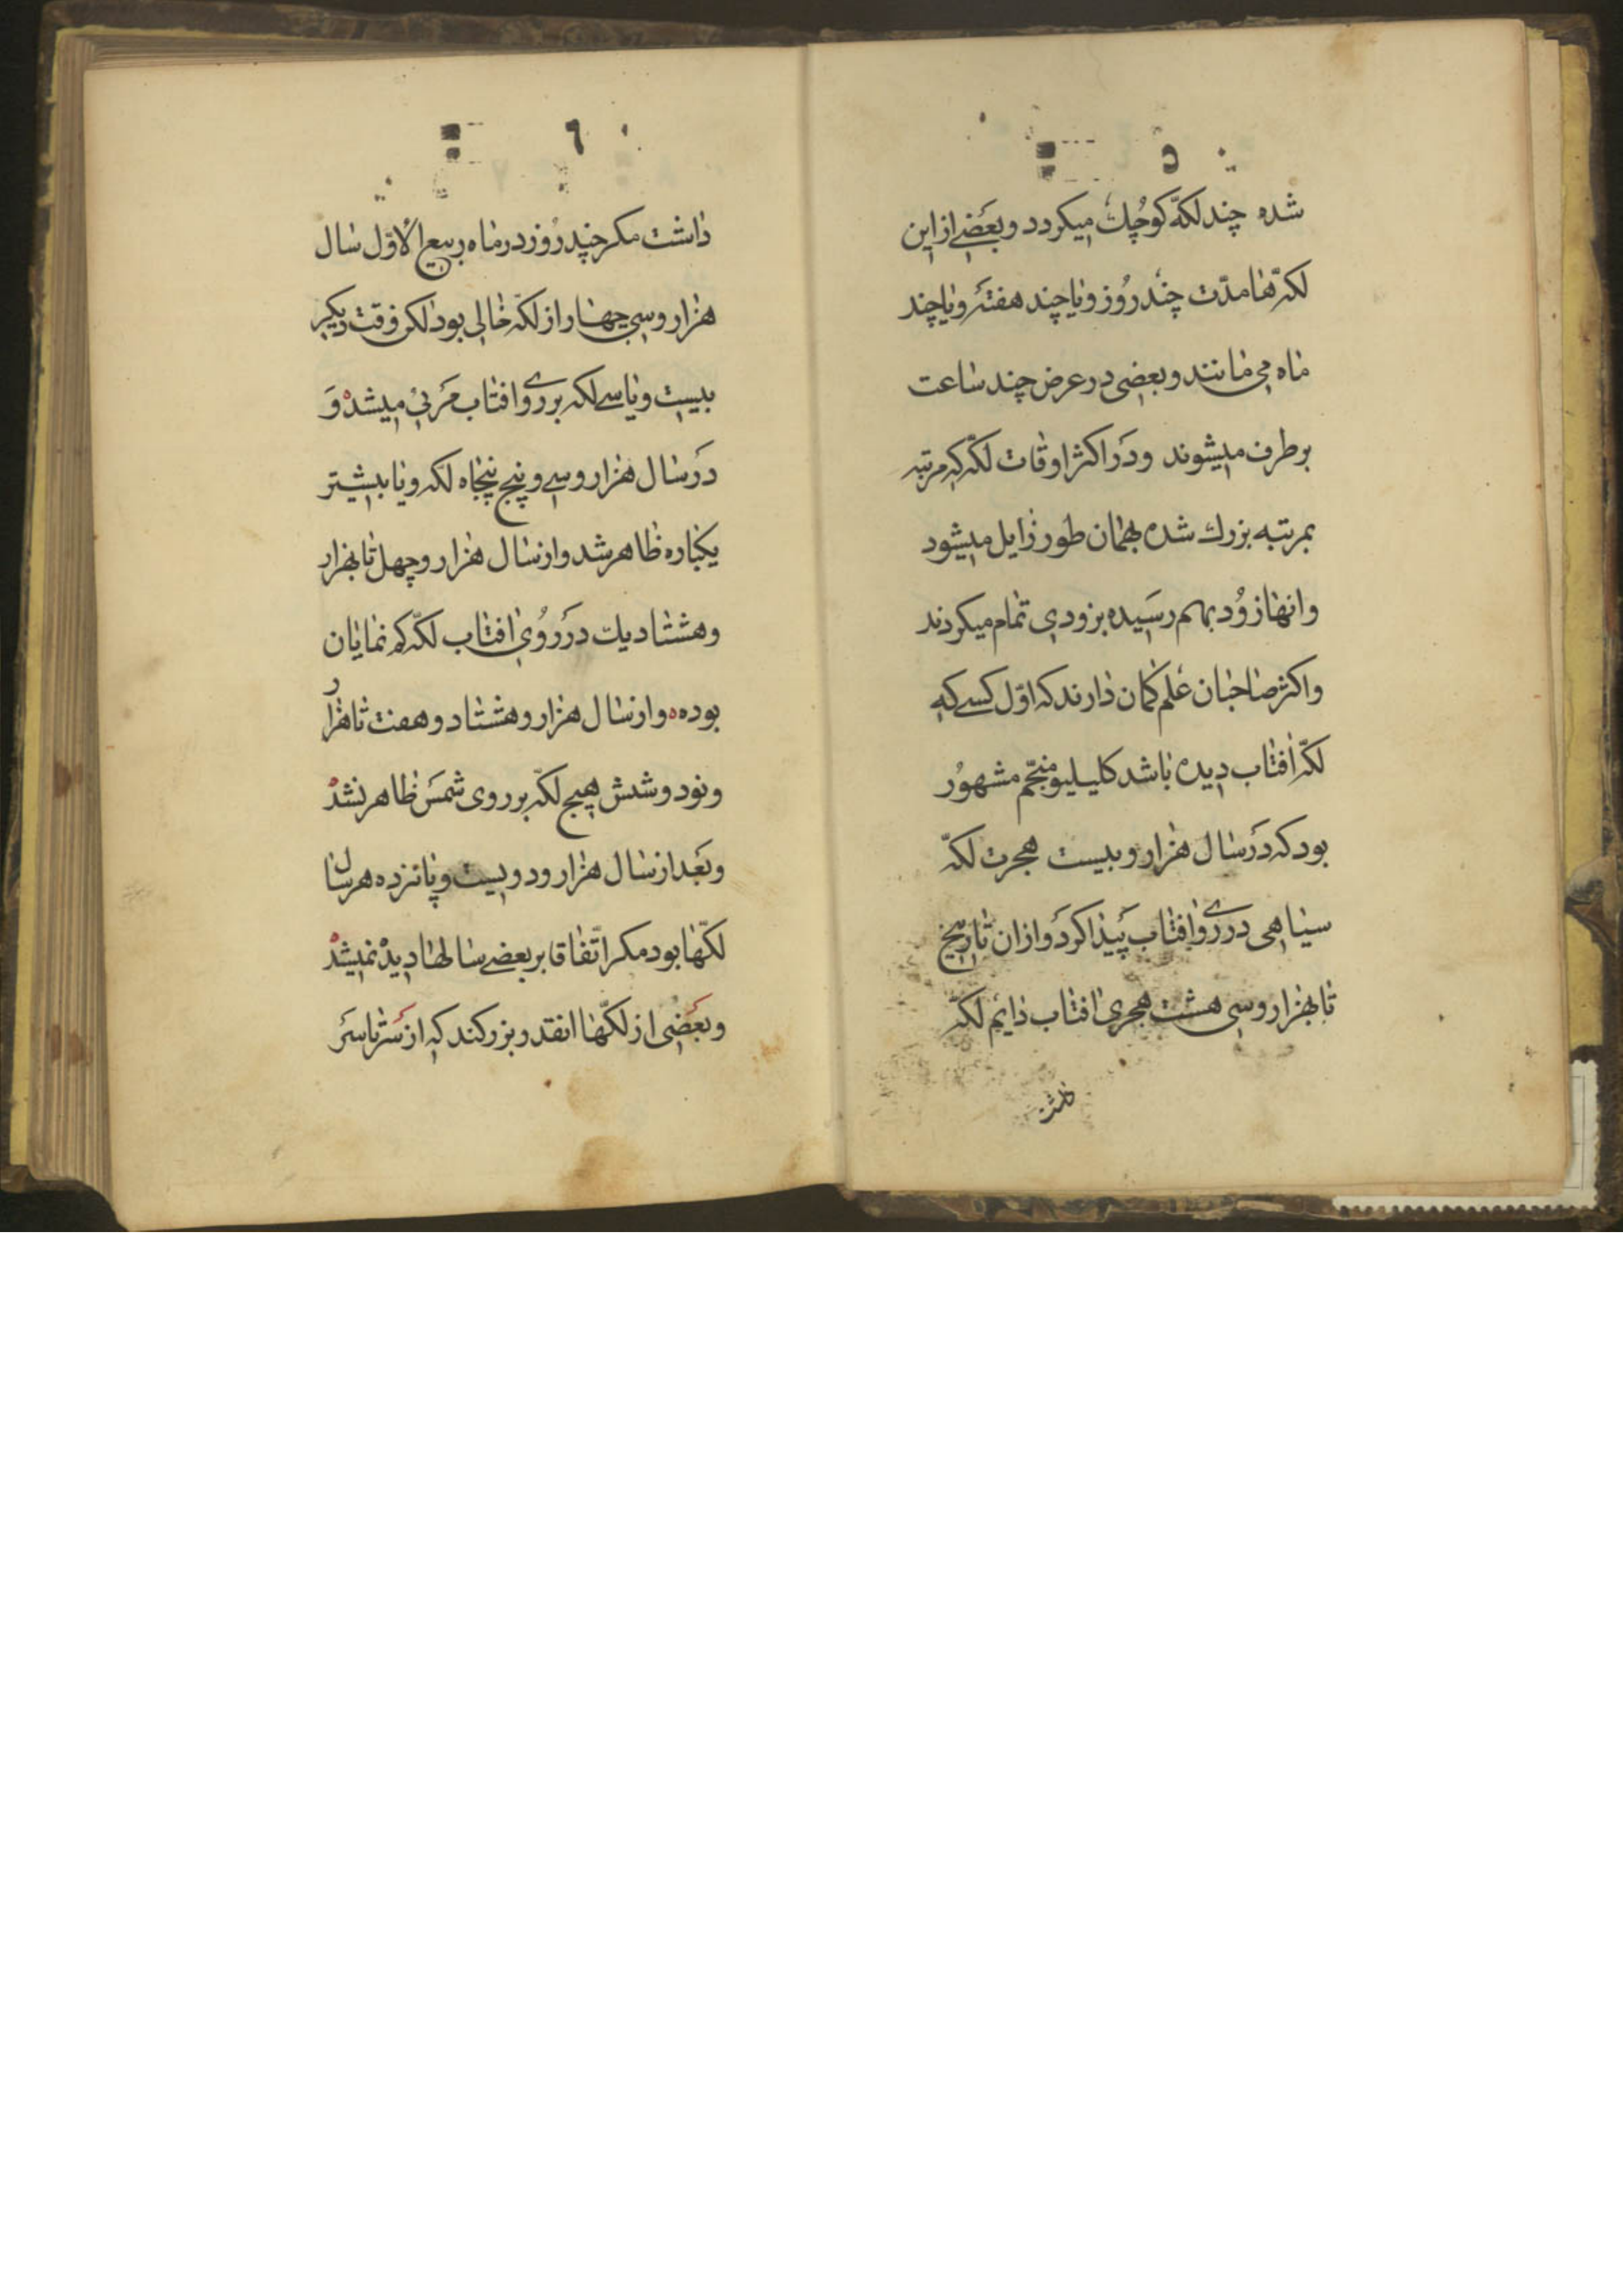 ۵
شده چند لکّه کوچک میکردد و بعضی از این
لکّه‌ها مدّت چند روز و یا چند هفته و یا چند
ماه می مانند و بعضی در عرض چند ساعت
برطرف میشوند و در اکثر اوقات لکّه که مرتبه
بمرتبه بزرک شده بهمان طور زایل میشود
و انها زود بهم رسیده بزودی تمام میکردند
و اکثر صاحبان علم کمان دارند که اوّل کسے که
لکّه افتاب دیده باشد کلیلیو منجّم مشهور
بود که در سال هزار و بیست هجرت لکّه
سیاهی در روے افتاب پیدا کرد و از ان تاریخ
تا بهزار و سی هشت هجری افتاب دایم لکّه
داشت
٦
داشت مکر چند روز در ماه ربیع الاوّل سال
هزار و سی چهار از لکّه خالی بود لکن وقت دیکر
بیست و یا سے لکه بر روے افتاب مرئی میشده و
در سال هزار و سے و پنج پنجاه لکه و یا بیشتر
یکباره ظاهر شد و از سال هزار و چهل تا بهزار
و هشتاد یک در روی افتاب لکّه کم نمایان
بوده و از سال هزار و هشتاد و هفت تا هزار
و نود و شش هیچ لکّه بر روی شمس ظاهر نشده
و بعد از سال هزار و دویست و پانزده هر سال
لکّها بود مکر اتّفاقا بر بعضے سالها دیده نمیشد
و بعضی از لکّها انقدر بزرکند که از سر تا سر